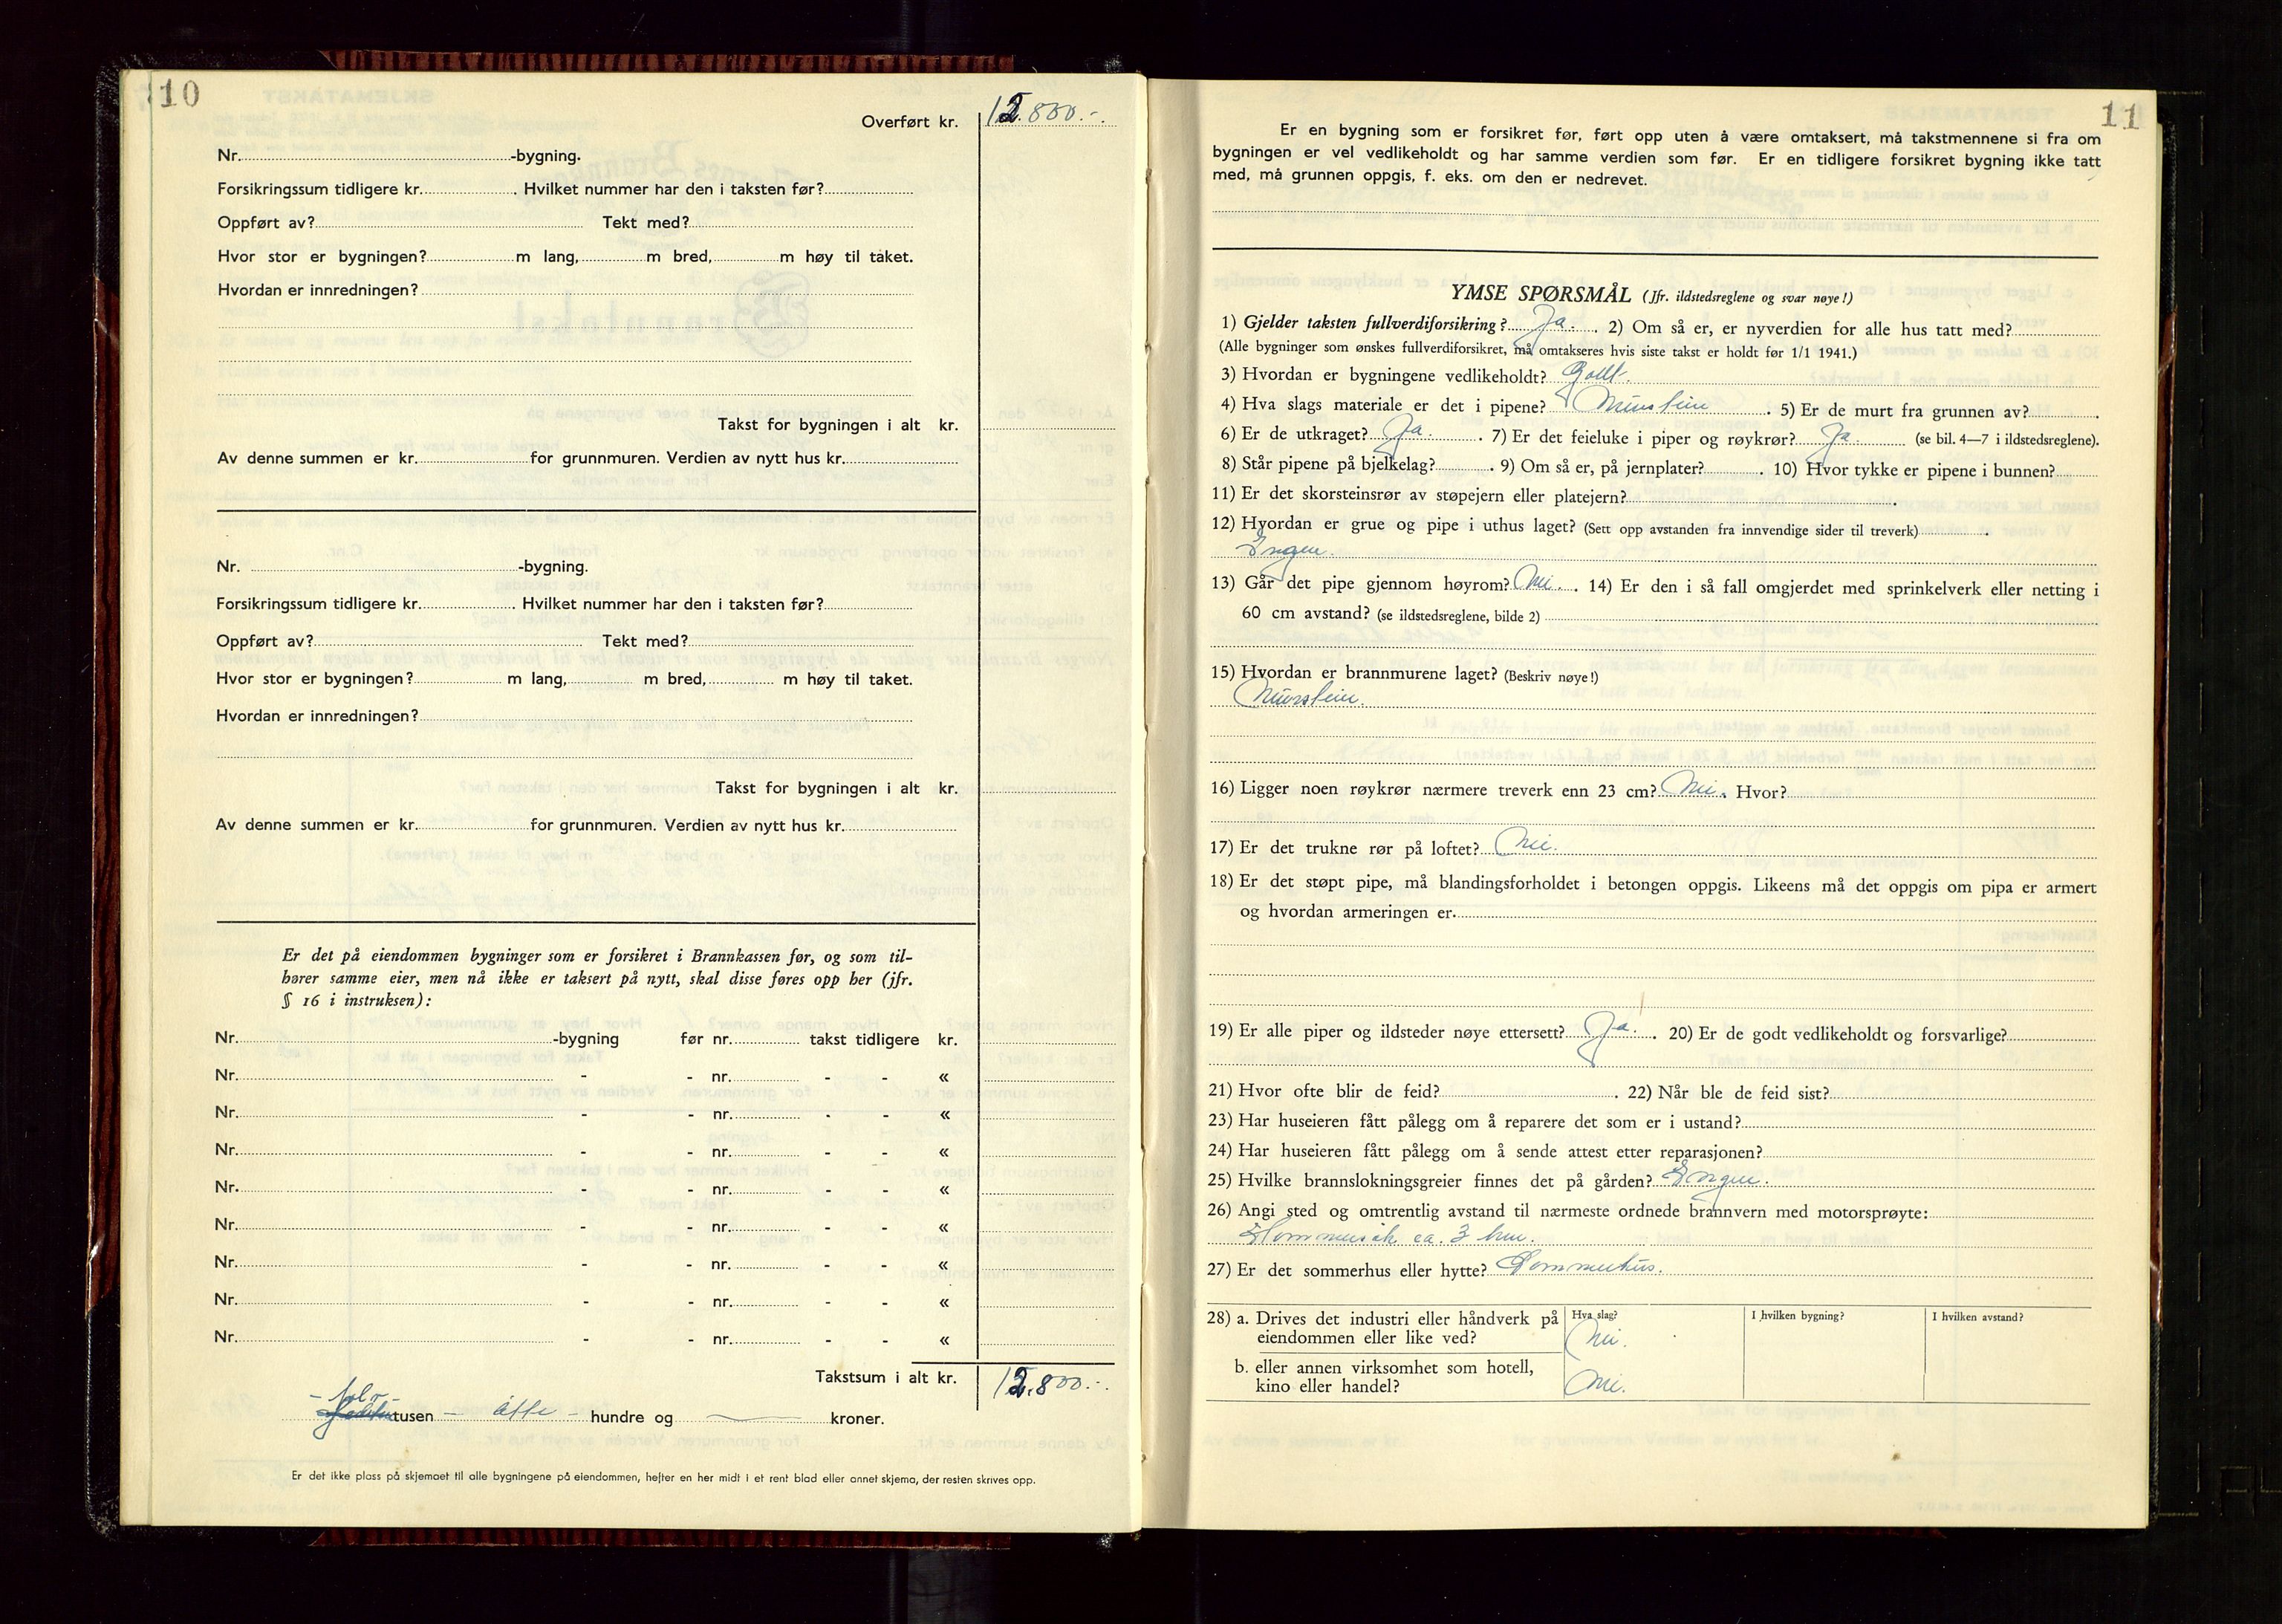 10
Overført kr. 12.800.-.
Nr. -bygning.
Forsikringssum tidligere kr. . Hvilket nummer har den i taksten før?
Oppført av? Tekt med?
Hvor stor er bygningen? m lang, m bred, m høy til taket.
Hvordan er innredningen?
Takst for bygningen i alt kr.
Av denne summen er kr. for grunnmuren. Verdien av nytt hus kr.
Nr. -bygning.
Forsikringssum tidligere kr. . Hvilket nummer har den i taksten før?
Oppført av? Tekt med?
Hvor stor er bygningen? m lang, m bred, m høy til taket.
Hvordan er innredningen?
Takst for bygningen i alt kr.
Av denne summen er kr. for grunnmuren. Verdien av nytt hus kr.
Er det på eiendommen bygninger som er forsikret i Brannkassen før, og som til-
hører samme eier, men nå ikke er taksert på nytt, skal disse føres opp her (jfr.
§ 16 i instruksen):
Nr. -bygning før nr. takst tidligere kr.
Nr. - - nr. - - «
Nr. - - nr. - - «
Nr. - - nr. - - «
Nr. - - nr. - - «
Nr. - - nr. - - «
Nr. - - nr. - - «
Nr. - - nr. - - «
Nr. - - nr. - - «
Takstsum i alt kr. 12.800.-.
- tolv -
tusen - åtte - hundre og — kroner.
Er det ikke plass på skjemaet til alle bygningene på eiendommen, hefter en her midt i et rent blad eller annet skjema, der resten skrives opp.
11
Er en bygning som er forsikret før, ført opp uten å være omtaksert, må takstmennene si fra om
bygningen er vel vedlikeholdt og har samme verdien som før. Er en tidligere forsikret bygning ikke tatt
med, må grunnen oppgis, f. eks. om den er nedrevet.
YMSE SPØRSMÅL (Jfr. ildstedsreglene og svar nøye!)
1) Gjelder taksten fullverdiforsikring? Ja. . 2) Om så er, er nyverdien for alle hus tatt med?
(Alle bygninger som ønskes fullverdiforsikret, må omtakseres hvis siste takst er holdt før 1/1 1941.)
3) Hvordan er bygningene vedlikeholdt? Godt.
4) Hva slags materiale er det i pipene? Murstein . 5) Er de murt fra grunnen av? .
6) Er de utkraget? Ja. . 7) Er det feieluke i piper og røykrør? Ja. (se bil. 4—7 i ildstedsreglene).
8) Står pipene på bjelkelag? . 9) Om så er, på jernplater? . 10) Hvor tykke er pipene i bunnen?
11) Er det skorsteinsrør av støpejern eller platejern? .
12) Hvordan er grue og pipe i uthus laget? (Sett opp avstanden fra innvendige sider til treverk) .
Ingen.
13) Går det pipe gjennom høyrom? Nei. . 14) Er den i så fall omgjerdet med sprinkelverk eller netting i
60 cm avstand? (se ildstedsreglene, bilde 2)
15) Hvordan er brannmurene laget? (Beskriv nøye!)
Murstein.
16) Ligger noen røykrør nærmere treverk enn 23 cm? Nei. Hvor?
17) Er det trukne rør på loftet? Nei.
18) Er det støpt pipe, må blandingsforholdet i betongen oppgis. Likeens må det oppgis om pipa er armert
og hvordan armeringen er.
19) Er alle piper og ildsteder nøye ettersett? Ja. . 20) Er de godt vedlikeholdt og forsvarlige?
21) Hvor ofte blir de feid? . 22) Når ble de feid sist?
23) Har huseieren fått pålegg om å reparere det som er i ustand?
24) Har huseieren fått pålegg om å sende attest etter reparasjonen?
25) Hvilke brannslokningsgreier finnes det på gården? Ingen.
26) Angi sted og omtrentlig avstand til nærmeste ordnede brannvern med motorsprøyte:
Hommersåk ca. 3 km.
27) Er det sommerhus eller hytte? Sommerhus.
28) a. Drives det industri eller håndverk på Hva slag? I hvilken bygning? I hvilken avstand?
eiendommen eller like ved? Nei.
b. eller annen virksomhet som hotell,
kino eller handel? Nei.